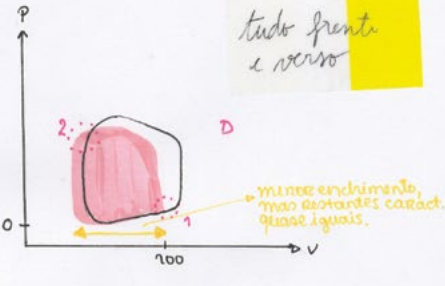 P
tudo frente
e verso
2
D
menor enchimento,
mas restantes caract.
quase iguais.
1
0
200
V